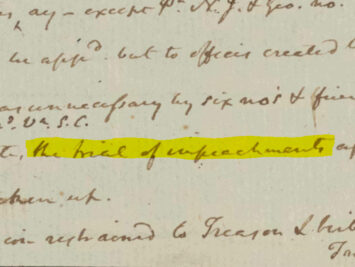 ay – except Pa. N. J. & Geo. no.
be app.d but to offices created
as unnecessary by six no's & five
Va. S. C.
the trial of impeachments
taken up.
con restrained to Treason & bri